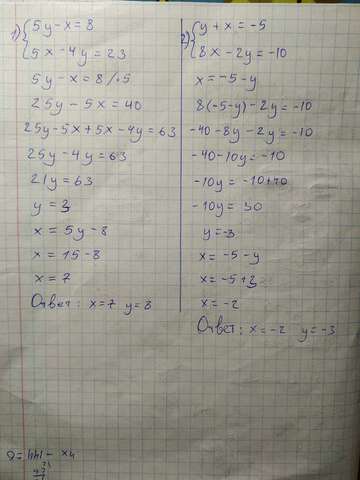 1) { 5y - x = 8
5x - 4y = 23
5y - x = 8 / ·5
25y - 5x = 40
25y - 5x + 5x - 4y = 63
25y - 4y = 63
21y = 63
y = 3
x = 5y - 8
x = 15 - 8
x = 7
Ответ: x = 7 y = 3
2) { y + x = -5
8x - 2y = -10
x = -5 - y
8(-5-y) - 2y = -10
-40 - 8y - 2y = -10
-40 - 10y = -10
-10y = -10 + 40
-10y = 30
y = -3
x = -5 - y
x = -5 + 3
x = -2
Ответ: x = -2 y = -3